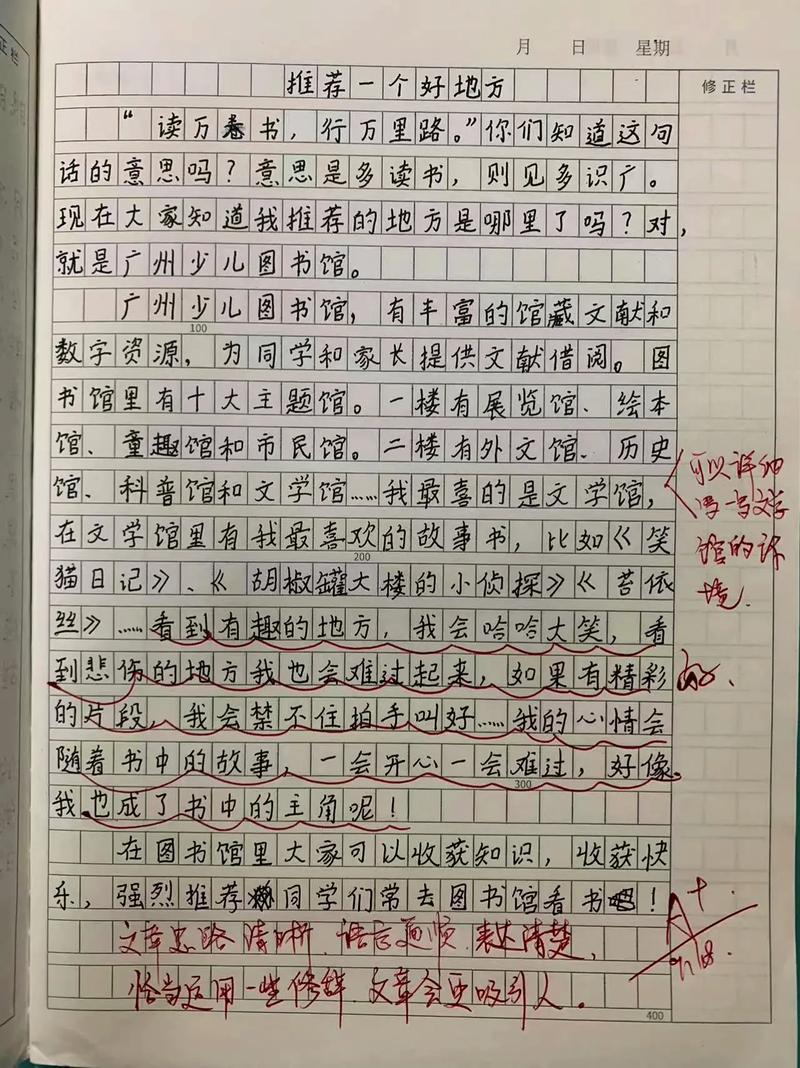 月 日 星期
修正栏
推荐一个好地方
“读万卷书，行万里路。”你们知道这句
话的意思吗？意思是多读书，则见多识广。
现在大家知道我推荐的地方是哪里了吗？对，
就是广州少儿图书馆。
广州少儿图书馆，有丰富的馆藏文献和
100
数字资源，为同学和家长提供文献借阅。图
书馆里有十大主题馆。一楼有展览馆、绘本
馆、童趣馆和市民馆。二楼有外文馆、历史
馆、科普馆和文学馆……我最喜的是文学馆，
可以详细
写一写文学
馆的环
境.
在文学馆里有我最喜欢的故事书，比如《笑
200
猫日记》、《胡椒罐大楼的小侦探》《苔依
丝》……看到有趣的地方，我会哈哈大笑，看
到悲伤的地方我也会难过起来，如果有精彩
的片段，我会禁不住拍手叫好……我的心情会
随着书中的故事，一会开心一会难过，好像
300
我也成了书中的主角呢！
在图书馆里大家可以收获知识，收获快
乐，强烈推荐同学们常去图书馆看书！
A+
文章思路清晰，语言通顺，表达清楚，
恰当运用一些修辞，文章会更吸引人。
400